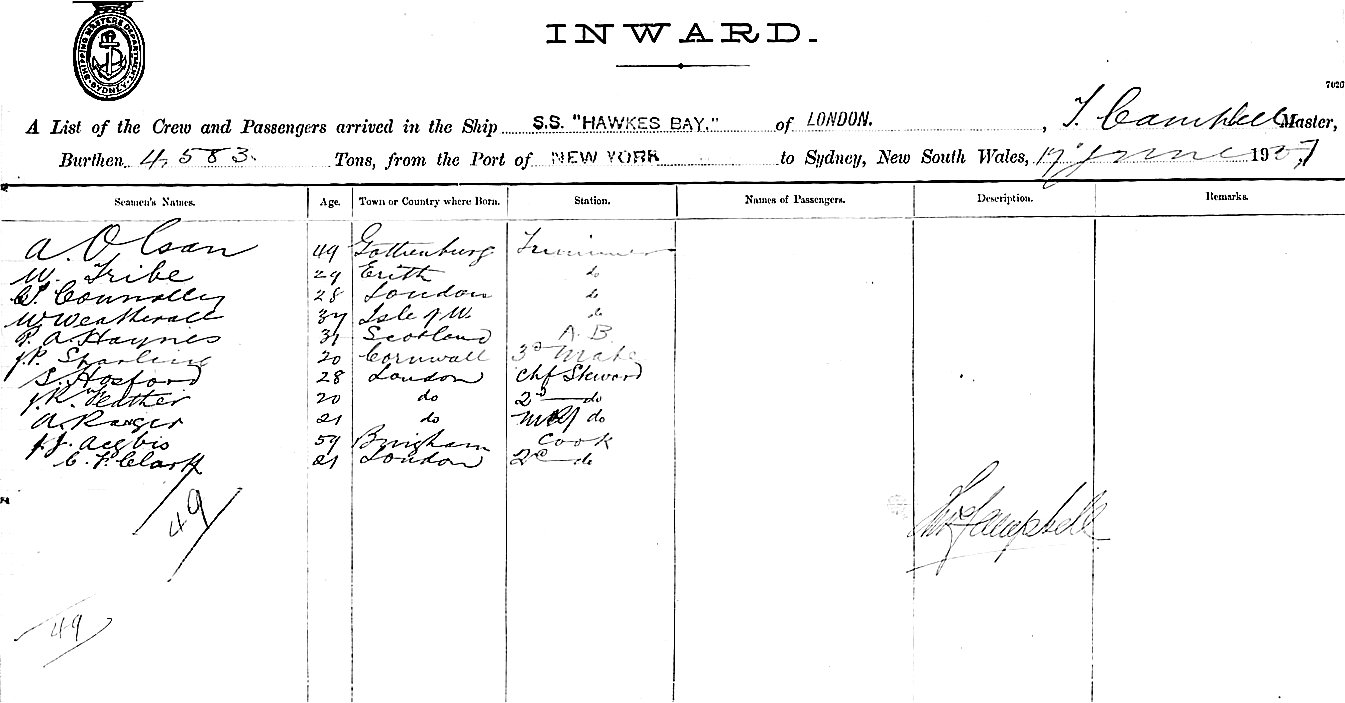 SHIPPING MASTERS DEPARTMENT SYDNEY
INWARD.
7020
A List of the Crew and Passengers arrived in the Ship S.S. "HAWKES BAY." of LONDON. , T. Campbell Master,
Burthen 4,583. Tons, from the Port of NEW YORK to Sydney, New South Wales, 17 June 1907
Seamen's Names. Age. Town or Country where Born. Station. Names of Passengers. Description. Remarks.
A. Olsan 49 Gothenburg Trimmer
W. Tribe 29 Erith do
Connolly 28 London do
W Weatherall 37 Isle of W. do
P. A. Haynes 31 Scotland A.B.
J.P. Sparling 20 Cornwall 3rd Mate
S. Hosford 28 London Chf Steward
J. R. Leather 20 do 2nd do
A. Ranger 21 do do
J. J. 59 Bingham Cook
C. F. Clark 21 London 2nd do
49
Campbell
49